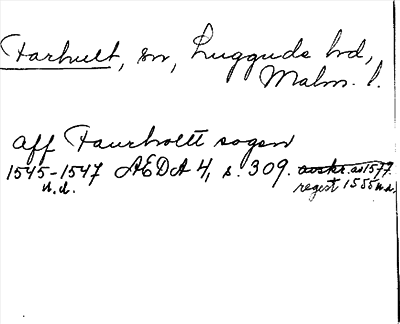 Farhult, sn, Luggude hd,
Malm. l.
aff Faurholtt sogen
1545-1547 AEDA 4, s. 309. avskr. av 1577.
n.d. regist 1555 n.d.